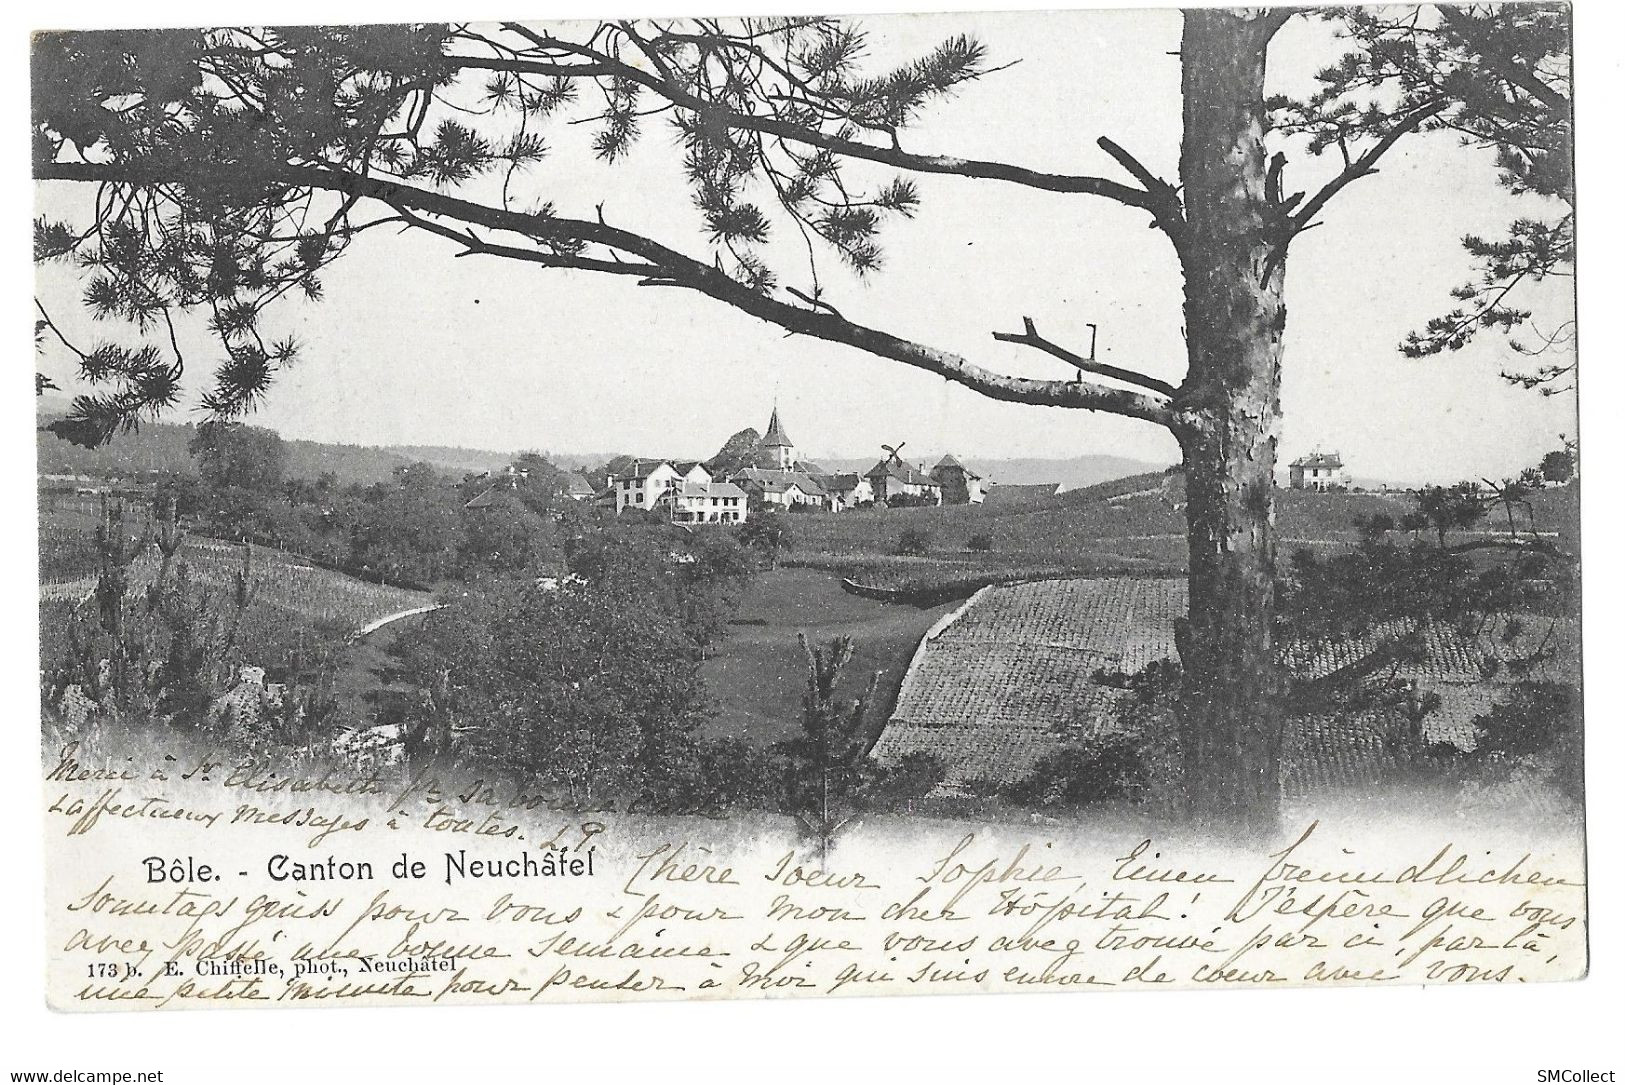 Merci à Sr Elisabeth pr sa bonne carte
& affectueux messages à toutes. L. P.
Bôle. - Canton de Neuchâtel
Chère Soeur Sophie, Einen freundlichen
Sonntags grüss pour vous & pour mon cher Hôpital! J'espère que vous
avez passé une bonne semaine & que vous avez trouvé par ci, par là,
173 b. E. Chiffelle, phot., Neuchâtel
une petite minute pour penser à moi qui suis encore de coeur avec vous.
delcampe.net
SMCollect